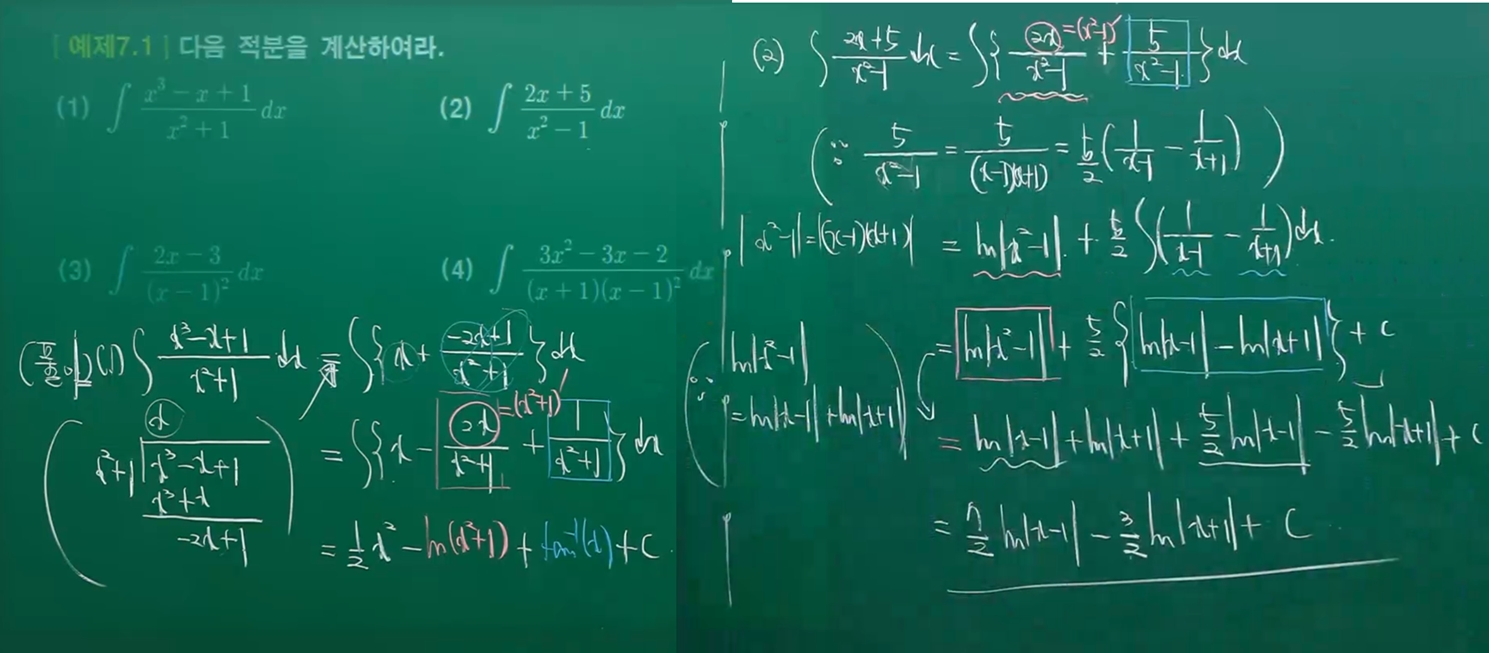 | 예제7.1 | 다음 적분을 계산하여라.
(1) ∫ (x³ − x + 1)/(x² + 1) dx
(2) ∫ (2x + 5)/(x² − 1) dx
(3) ∫ (2x − 3)/(x − 1)² dx
(4) ∫ (3x² − 3x − 2)/((x + 1)(x − 1)²) dx
(풀이) (1) ∫ (x³−x+1)/(x²+1) dx = ∫{x + (−2x+1)/(x²+1)} dx
x
x²+1 | x³−x+1
x³+x
−2x+1
=(x²+1)′
= ∫{x − 2x/(x²+1) + 1/(x²+1)} dx
= 1/2 x² − ln(x²+1) + tan⁻¹(x) + C
(2) ∫ (2x+5)/(x²−1) dx = ∫{2x/(x²−1) + 5/(x²−1)} dx
=(x²−1)′
(∵ 5/(x²−1) = 5/((x−1)(x+1)) = 5/2 (1/(x−1) − 1/(x+1)))
|x²−1|=|(x−1)(x+1)|
= ln|x²−1| + 5/2 ∫(1/(x−1) − 1/(x+1)) dx.
= ln|x²−1| + 5/2 {ln|x−1| − ln|x+1|} + C
(∵ ln|x²−1|
= ln|x−1| + ln|x+1|)
= ln|x−1| + ln|x+1| + 5/2 ln|x−1| − 5/2 ln|x+1| + C
= 7/2 ln|x−1| − 3/2 ln|x+1| + C